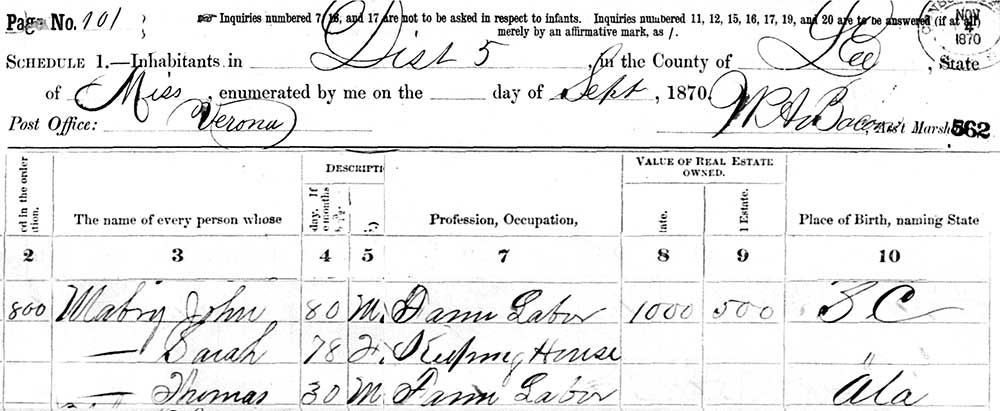 Page No. 101
☞ Inquiries numbered 7, 16, and 17 are not to be asked in respect to infants. Inquiries numbered 11, 12, 15, 16, 17, 19, and 20 are to be answered (if at all)
merely by an affirmative mark, as /.
NOV
4
1870
SCHEDULE 1.—Inhabitants in Dist 5, in the County of Lee, State
of Miss, enumerated by me on the day of Sept, 1870.
Post Office: Verona
W A Bacon, Ass't Marsh
562
ed in the order
tion.
The name of every person whose
DESCRIPTI
day. If
months
Profession, Occupation,
VALUE OF REAL ESTATE
OWNED.
tate.
l Estate.
Place of Birth, naming State
2 3 4 5 7 8 9 10
800 Mabry John 80 M. Farm Labor 1000 500 S C
— Sarah 78 F. Keeping House "
— Thomas 30 M Farm Labor Ala